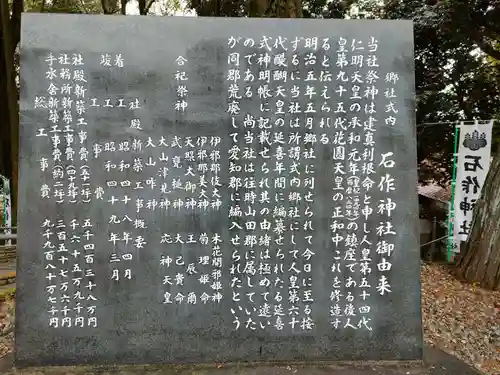 郷社式内 石作神社御由来
当社祭神は建真利根命と申し人皇第五十四代
仁明天皇の承和元年の鎮座である後人
皇第九十五代花園天皇の正和中これを修造す
ると伝えられる
明治五年五月郷社に列せられて今日に至る按
ずるに当社は所謂式内郷社にして人皇第六十
代醍醐天皇の延喜年間に編纂せられたる延喜
式神明帳に記載せられ其の由緒は極めて遠い
のである 尚当社は往時山田郡に属していた
が同郡荒廃して愛知郡に編入せられたという
合祀祭神
伊邪那岐大神 木花開邪姫神
伊邪那美大神 菊理姫命
天照大御神 王辰爾
武甕槌神 大己貴命
大山津見神 応神天皇
大山咋神
社殿新築工事概要
着工 昭和四十八年四月
竣工 昭和四十九年三月
工事費
社殿新築工事費 五千四百三十八万円
社務所新築工事費 千六十五万九千円
手水舎新築工事費 三百五十七万六千円
総工事費 九千九百八十万七千円
石作神社